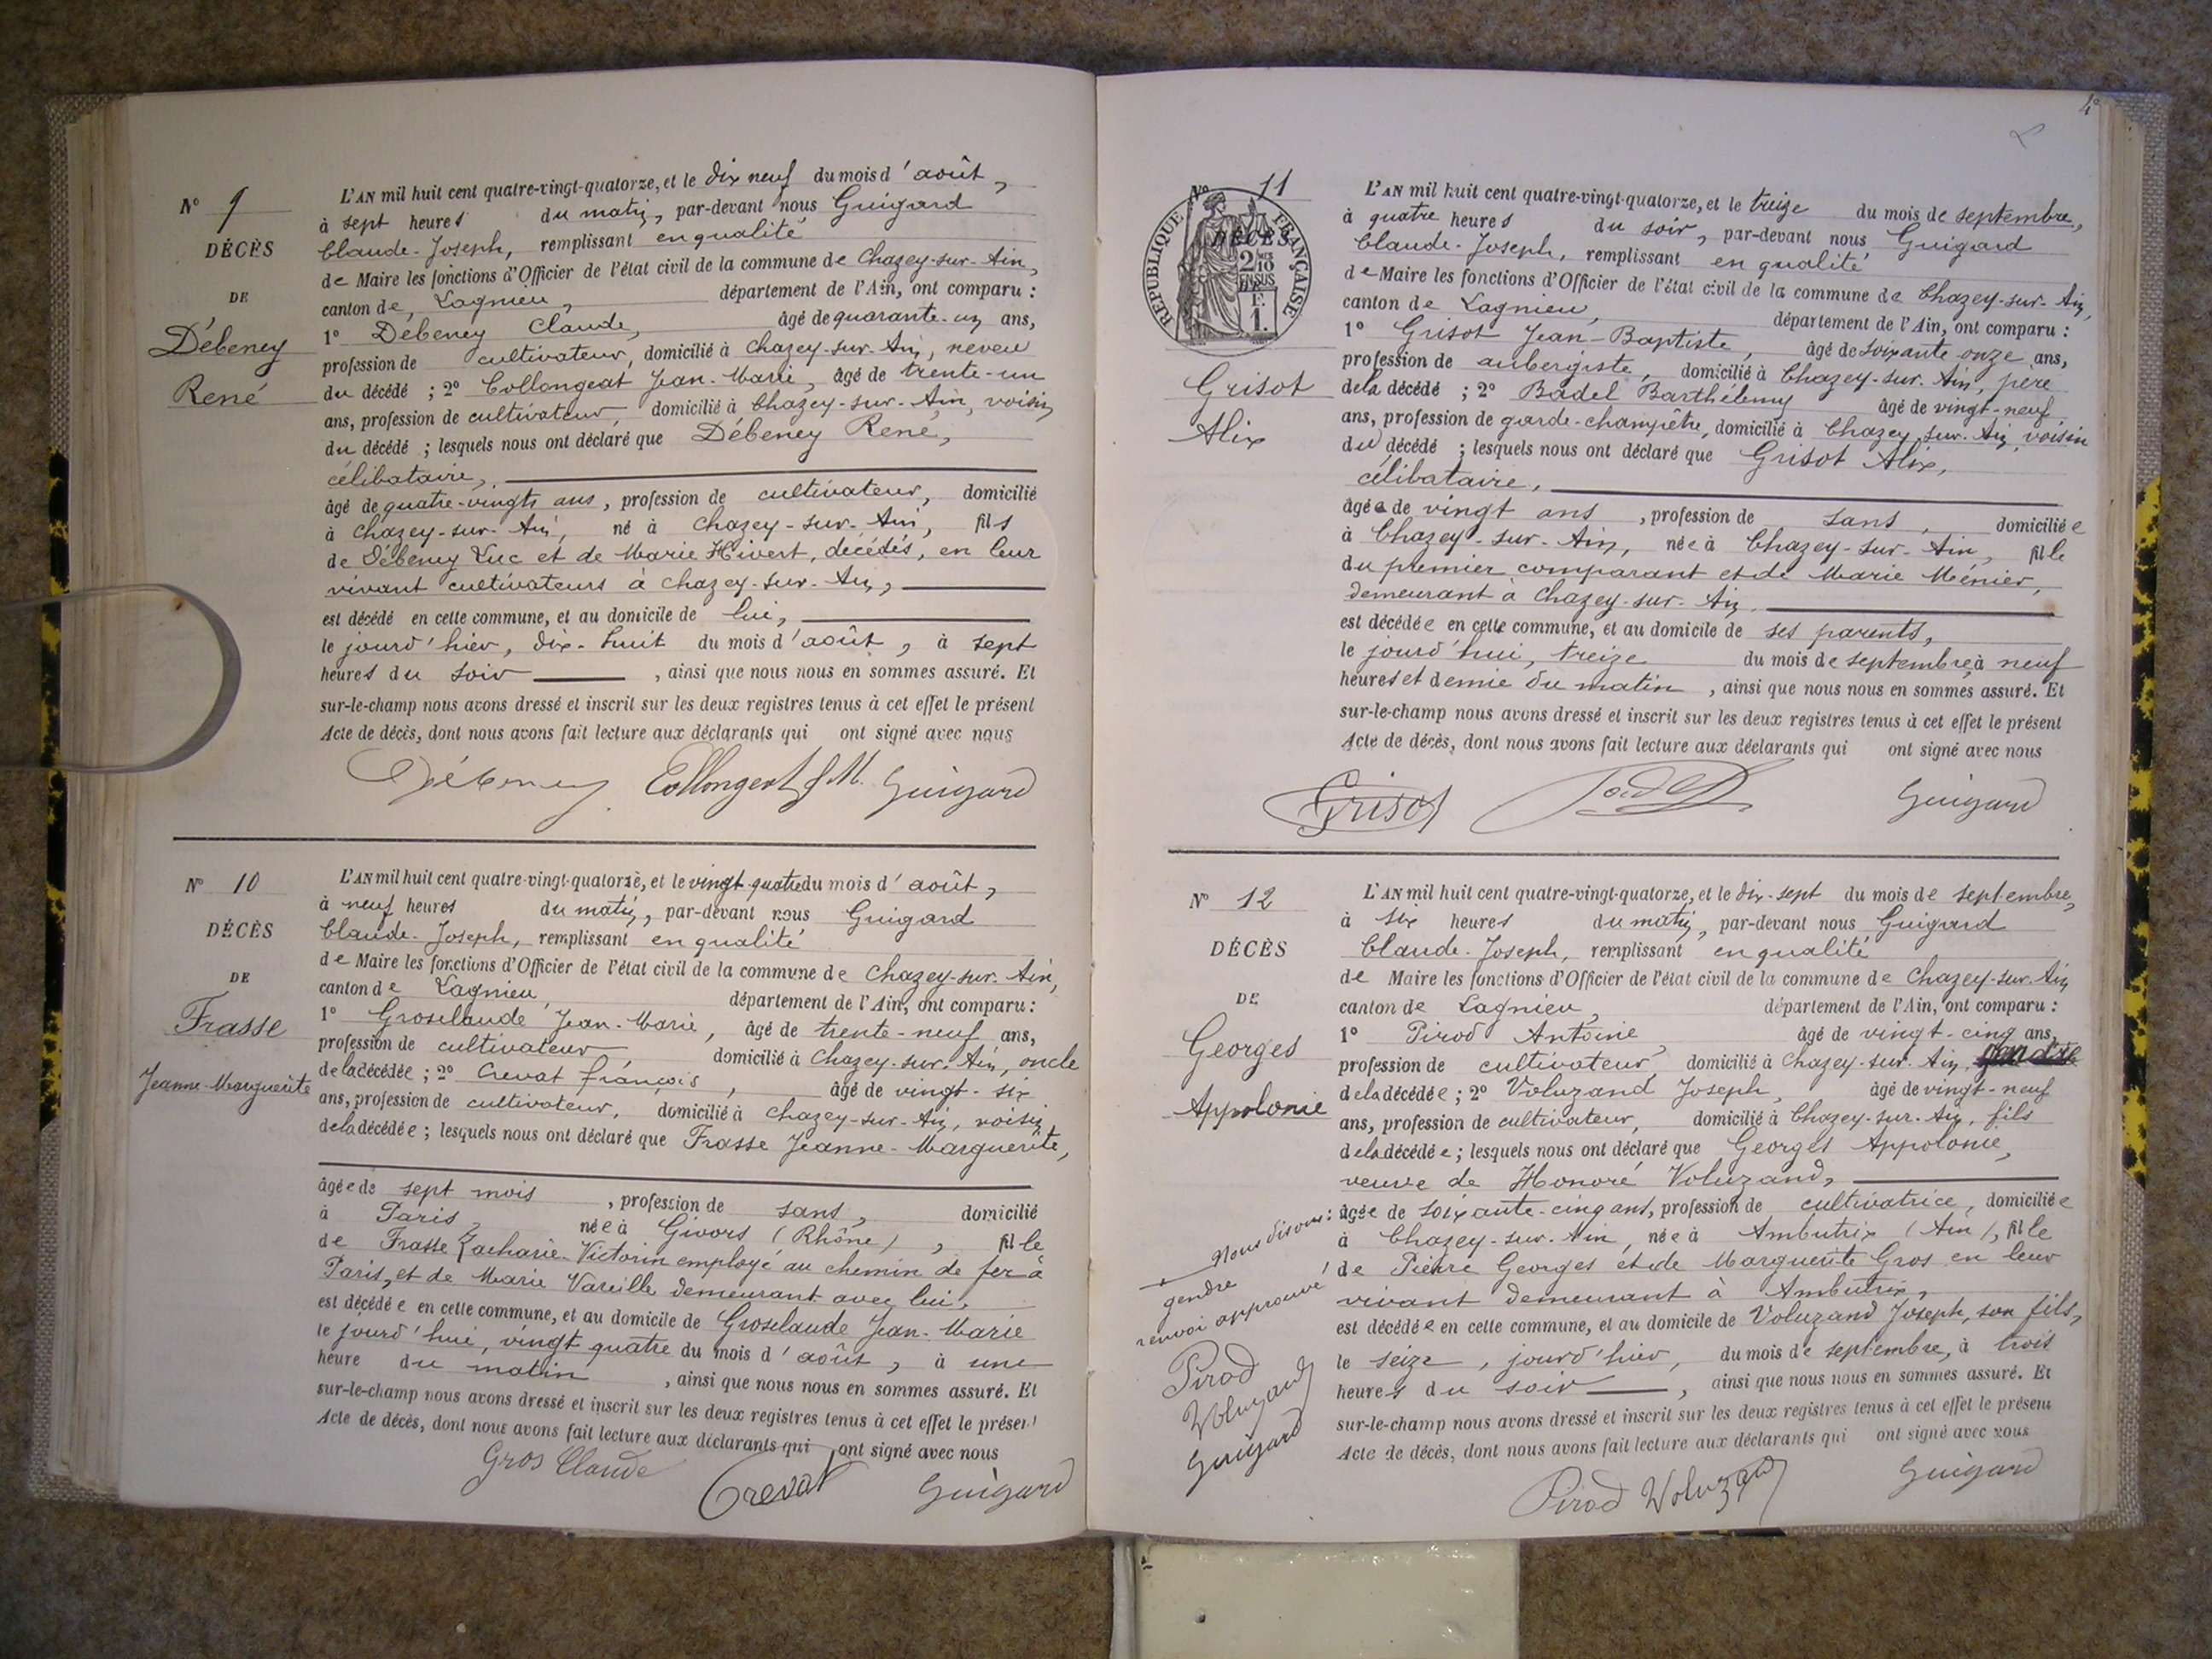 N° 9
DÉCÈS
DE
Débeney
René
L'AN mil huit cent quatre-vingt-quatorze, et le dix neuf du mois d'août,
à sept heures du matin, par-devant nous Guigard
Claude-Joseph, remplissant en qualité
de Maire les fonctions d'Officier de l'état civil de la commune de Chazey-sur-Ain,
canton de Lagnieu, département de l'Ain, ont comparu :
1° Débeney Claude, âgé de quarante-un ans,
profession de cultivateur, domicilié à Chazey-sur-Ain, neveu
du décédé ; 2° Collongeat Jean-Marie, âgé de trente-un
ans, profession de cultivateur, domicilié à Chazey-sur-Ain, voisin
du décédé ; lesquels nous ont déclaré que Débeney René,
célibataire,
âgé de quatre-vingts ans, profession de cultivateur, domicilié
à Chazey-sur-Ain, né à Chazey-sur-Ain, fils
de Débeney Luc et de Marie Hivert, décédés, en leur
vivant cultivateurs à Chazey-sur-Ain,
est décédé en cette commune, et au domicile de lui,
le jourd'hier, dix-huit du mois d'août, à sept
heures du soir, ainsi que nous nous en sommes assuré. Et
sur-le-champ nous avons dressé et inscrit sur les deux registres tenus à cet effet le présent
Acte de décès, dont nous avons fait lecture aux déclarants qui ont signé avec nous
Débeney Collongeat J M. Guigard
N° 10
DÉCÈS
DE
Frasse
Jeanne-Marguerite
L'AN mil huit cent quatre-vingt-quatorze, et le vingt-quatre du mois d'août,
à neuf heures du matin, par-devant nous Guigard
Claude-Joseph, remplissant en qualité
de Maire les fonctions d'Officier de l'état civil de la commune de Chazey-sur-Ain,
canton de Lagnieu, département de l'Ain, ont comparu :
1° Groslaude Jean-Marie, âgé de trente-neuf ans,
profession de cultivateur, domicilié à Chazey-sur-Ain, oncle
de la décédée ; 2° Crevat françois, âgé de vingt-six
ans, profession de cultivateur, domicilié à Chazey-sur-Ain, voisin
de la décédée ; lesquels nous ont déclaré que Frasse Jeanne-Marguerite,
âgée de sept mois, profession de sans, domicilié
à Paris, née à Givors (Rhône), fille
de Frasse Zacharie-Victorin employé au chemin de fer à
Paris, et de Marie Vareille demeurant avec lui,
est décédée en cette commune, et au domicile de Groslaude Jean-Marie
le jourd'hui, vingt quatre du mois d'août, à une
heure du matin, ainsi que nous nous en sommes assuré. Et
sur-le-champ nous avons dressé et inscrit sur les deux registres tenus à cet effet le présent
Acte de décès, dont nous avons fait lecture aux déclarants qui ont signé avec nous
Gros Claude Crevat Guigard
N° 11
DÉCÈS
RÉPUBLIQUE FRANÇAISE
Grisot
Alix
L'AN mil huit cent quatre-vingt-quatorze, et le treize du mois de septembre,
à quatre heures du soir, par-devant nous Guigard
Claude-Joseph, remplissant en qualité
de Maire les fonctions d'Officier de l'état civil de la commune de Chazey-sur-Ain,
canton de Lagnieu, département de l'Ain, ont comparu :
1° Grisot Jean-Baptiste, âgé de soixante-onze ans,
profession de aubergiste, domicilié à Chazey-sur-Ain, père
de la décédé ; 2° Badel Barthélemy âgé de vingt-neuf
ans, profession de garde-champêtre, domicilié à Chazey-sur-Ain, voisin
du décédé ; lesquels nous ont déclaré que Grisot Alix,
célibataire,
âgée de vingt ans, profession de sans, domiciliée
à Chazey-sur-Ain, née à Chazey-sur-Ain, fille
du premier comparant et de Marie Ménier,
demeurant à Chazey-sur-Ain,
est décédée en cette commune, et au domicile de ses parents,
le jourd'hui, treize du mois de septembre, à neuf
heures et demie du matin, ainsi que nous nous en sommes assuré. Et
sur-le-champ nous avons dressé et inscrit sur les deux registres tenus à cet effet le présent
Acte de décès, dont nous avons fait lecture aux déclarants qui ont signé avec nous
Grisot Badel Guigard
N° 12
DÉCÈS
DE
Georges
Appolonie
L'AN mil huit cent quatre-vingt-quatorze, et le dix-sept du mois de septembre,
à six heures du matin, par-devant nous Guigard
Claude-Joseph, remplissant en qualité
de Maire les fonctions d'Officier de l'état civil de la commune de Chazey-sur-Ain
canton de Lagnieu, département de l'Ain, ont comparu :
1° Pirod Antoine, âgé de vingt-cinq ans,
profession de cultivateur, domicilié à Chazey-sur-Ain,
de la décédée ; 2° Voluzand Joseph, âgé de vingt-neuf
ans, profession de cultivateur, domicilié à Chazey-sur-Ain, fils
de la décédée ; lesquels nous ont déclaré que Georges Appolonie,
veuve de Honoré Voluzand,
âgée de soixante-cinq ans, profession de cultivatrice, domiciliée
à Chazey-sur-Ain, née à Ambutrix (Ain), fille
de Pierre Georges et de Marguerite Gros en leur
vivant demeurant à Ambutrix,
est décédée en cette commune, et au domicile de Voluzand Joseph, son fils,
le seize, jourd'hier, du mois de septembre, à trois
heures du soir, ainsi que nous nous en sommes assuré. Et
sur-le-champ nous avons dressé et inscrit sur les deux registres tenus à cet effet le présent
Acte de décès, dont nous avons fait lecture aux déclarants qui ont signé avec nous
Pirod Voluzand Guigard
Nous disons :
gendre
renvoi approuvé
Pirod
Voluzand
Guigard